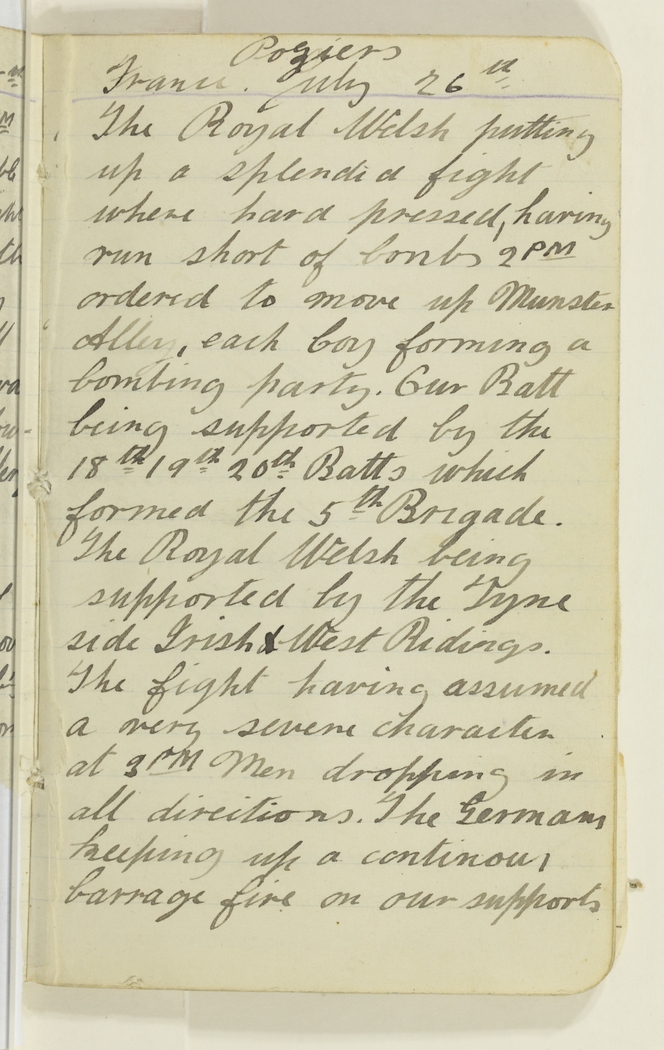 Poziers
France. July 26th
The Royal Welsh putting
up a splendid fight
where hard pressed, having
run short of bombs 2PM
ordered to move up Munster
Alley, each boy forming a
bombing party. Our Batt
being supported by the
18th 19th 20th Batts which
formed the 5th Brigade.
The Royal Welsh being
supported by the Tyne
side Irish & West Ridings.
The fight having assumed
a very severe character
at 3PM Men dropping in
all directions. The Germans
keeping up a continous
barrage fire on our supports